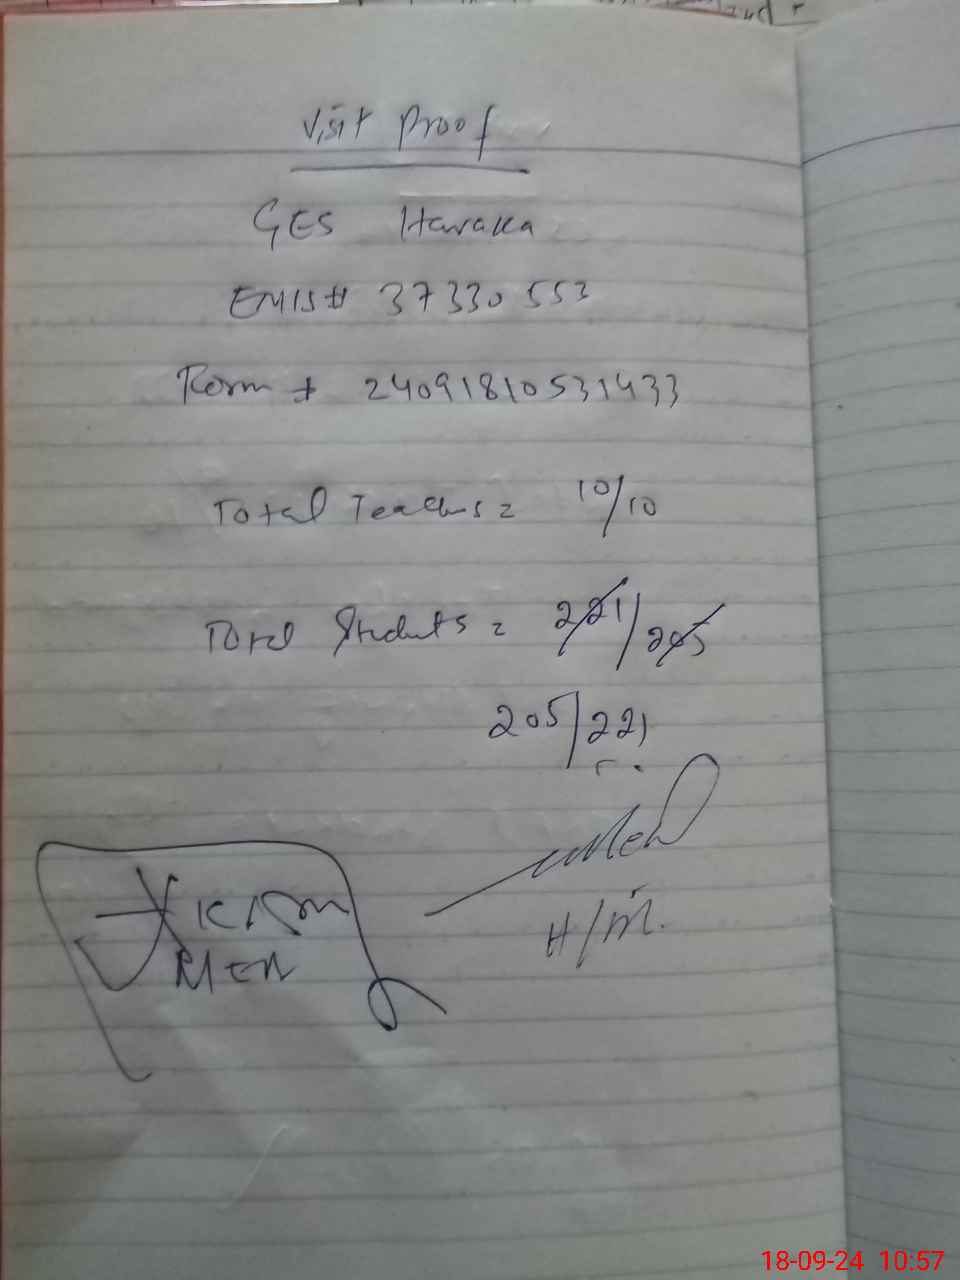 Visit Proof
GES Havaka
EMIS# 37330553
Form # 24091810531433
Total Teachers = 10/10
Total Students = 221/205
205/221
H/M.
MEA
18-09-24 10:57